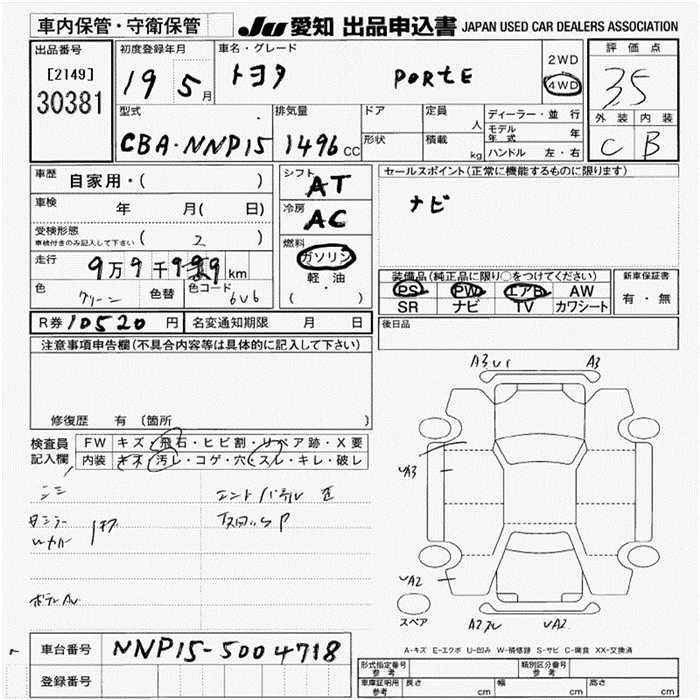 車内保管・守衛保管
JU 愛知 出品申込書 JAPAN USED CAR DEALERS ASSOCIATION
出品番号
[2149]
30381
初度登録年月
19 5月
車名・グレード
トヨタ PORTE
2WD
4WD
評価点
3.5
外装 内装
C B
型式
CBA・NNP15
排気量
1496 CC
ドア
形状
定員 人
積載 kg
ディーラー・並行
モデル年式 年
ハンドル 左・右
車歴 自家用・( )
車検 年 月( 日)
受検形態
車検付きのみ記入して下さい ( 2 )
走行 9万9千999km
色 グリーン 色替 色コード 6V6
シフト AT
冷房 AC
燃料
ガソリン
軽・油
( ・ )
セールスポイント(正常に機能するものに限ります)
ナビ
装備品(純正品に限り○をつけてください)
PS PW エアB AW
SR ナビ TV カワシート
新車保証書
有・無
R券 10520 円 名変通知期限 月 日
後日品
注意事項申告欄(不具合内容等は具体的に記入して下さい)
修復歴 有 〔箇所 〕
検査員記入欄
FW キズ・飛石・ヒビ割・リペア跡・X要
内装 キズ・汚レ・コゲ・穴・スレ・キレ・破レ
A3 A3
A3
A2
A2 A2
スペア
A-キズ E-エクボ U-凹み W-補修跡 S-サビ C-腐食 XX-交換済
車台番号 NNP15-5004718
登録番号
型式指定番号 参考
類別区分番号 参考
車庫証明用 参考 長さ cm 幅 cm 高さ cm